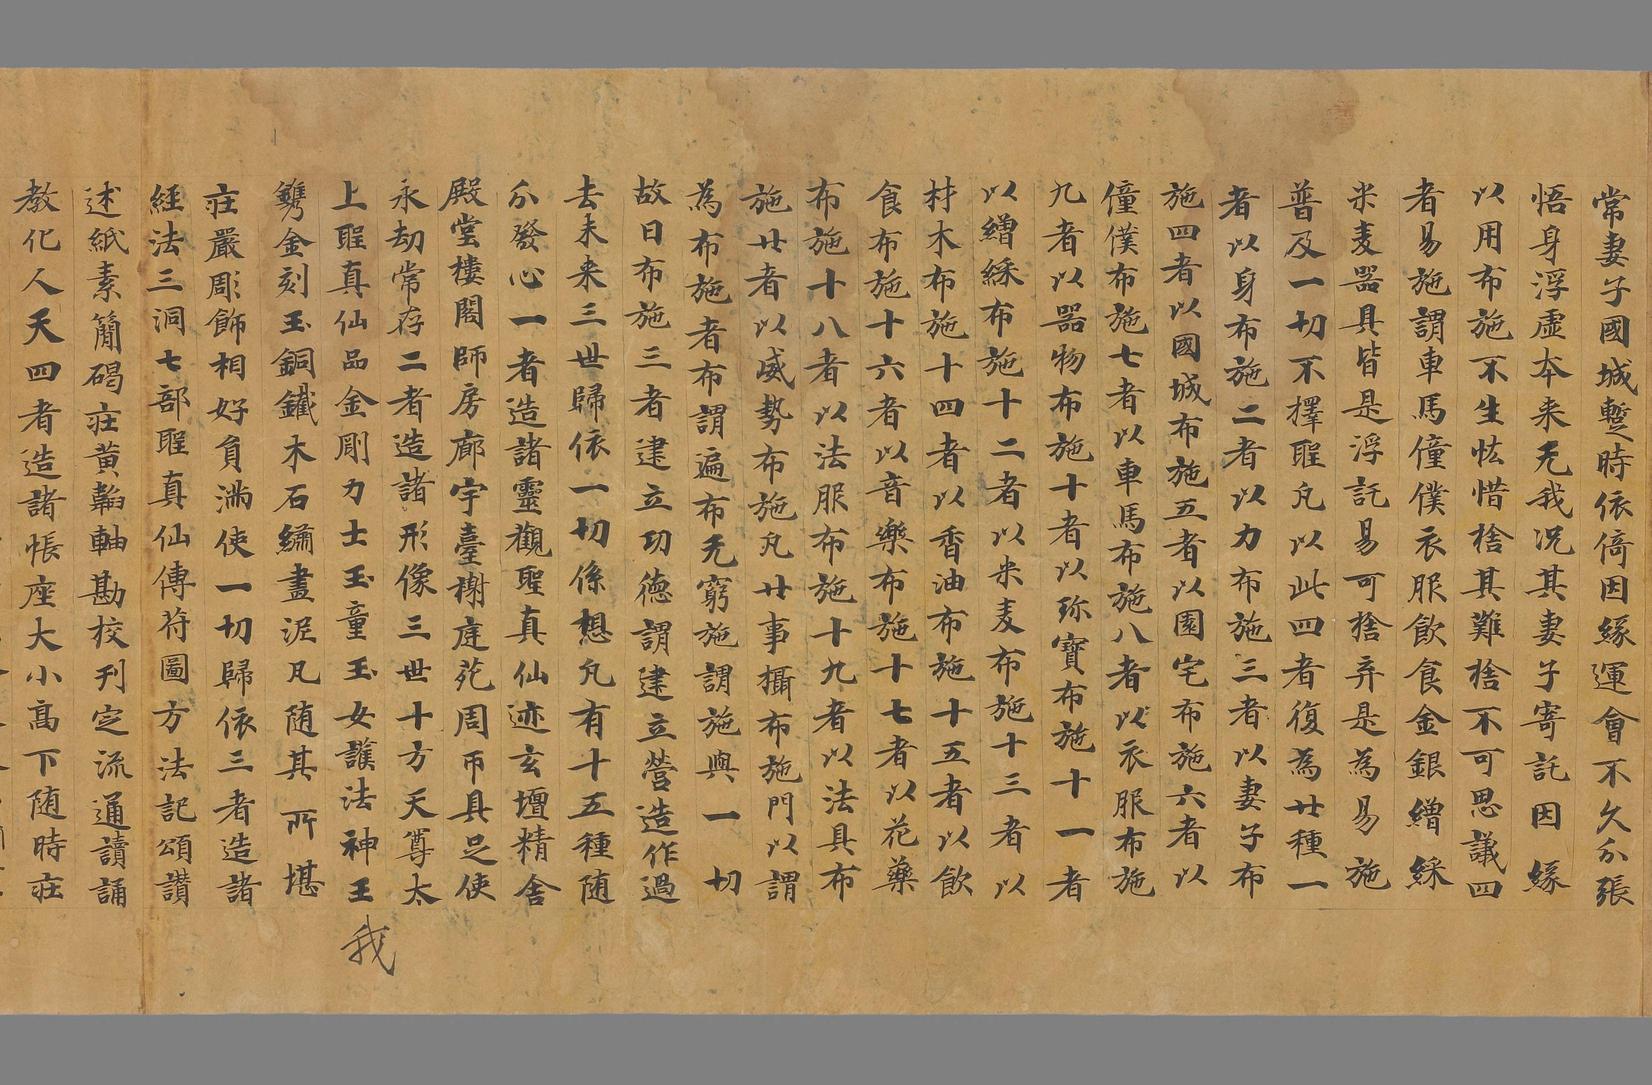 常妻子國城蹔時依倚因緣運會不久分張
悟身浮虛本来无我況其妻子寄託因緣
以用布施不生怯惜捨其難捨不可思議四
者易施謂車馬僮僕衣服飲食金銀繒綵
米麦器具皆是浮託易可捨弃是為易施
普及一切不擇聖凡以此四者復為廿種一
者以身布施二者以力布施三者以妻子布
施四者以國城布施五者以園宅布施六者以
僮僕布施七者以車馬布施八者以衣服布施
九者以器物布施十者以珎寶布施十一者
以繒綵布施十二者以米麦布施十三者以
材木布施十四者以香油布施十五者以飲
食布施十六者以音樂布施十七者以花藥
布施十八者以法服布施十九者以法具布
施廿者以威勢布施凡廿事攝布施門以謂
為布施者布謂遍布无窮施謂施與一切
故曰布施三者建立功德謂建立營造作過
去未来三世歸依一切係想凡有十五種随
分發心一者造諸靈觀聖真仙迹玄壇精舍
殿堂樓閣師房廊宇臺榭庭菀周帀具足使
永劫常存二者造諸形像三世十方天尊太
上聖真仙品金剛力士玉童玉女護法神王
我
鐫金刻玉銅鐵木石繡畫泥凡随其所堪
莊嚴彫飾相好具滿使一切歸依三者造諸
經法三洞七部聖真仙傳符圖方法記頌讃
述紙素簡碣莊黄軸勘校刊定流通讀誦
教化人天四者造諸帳座大小高下随時莊